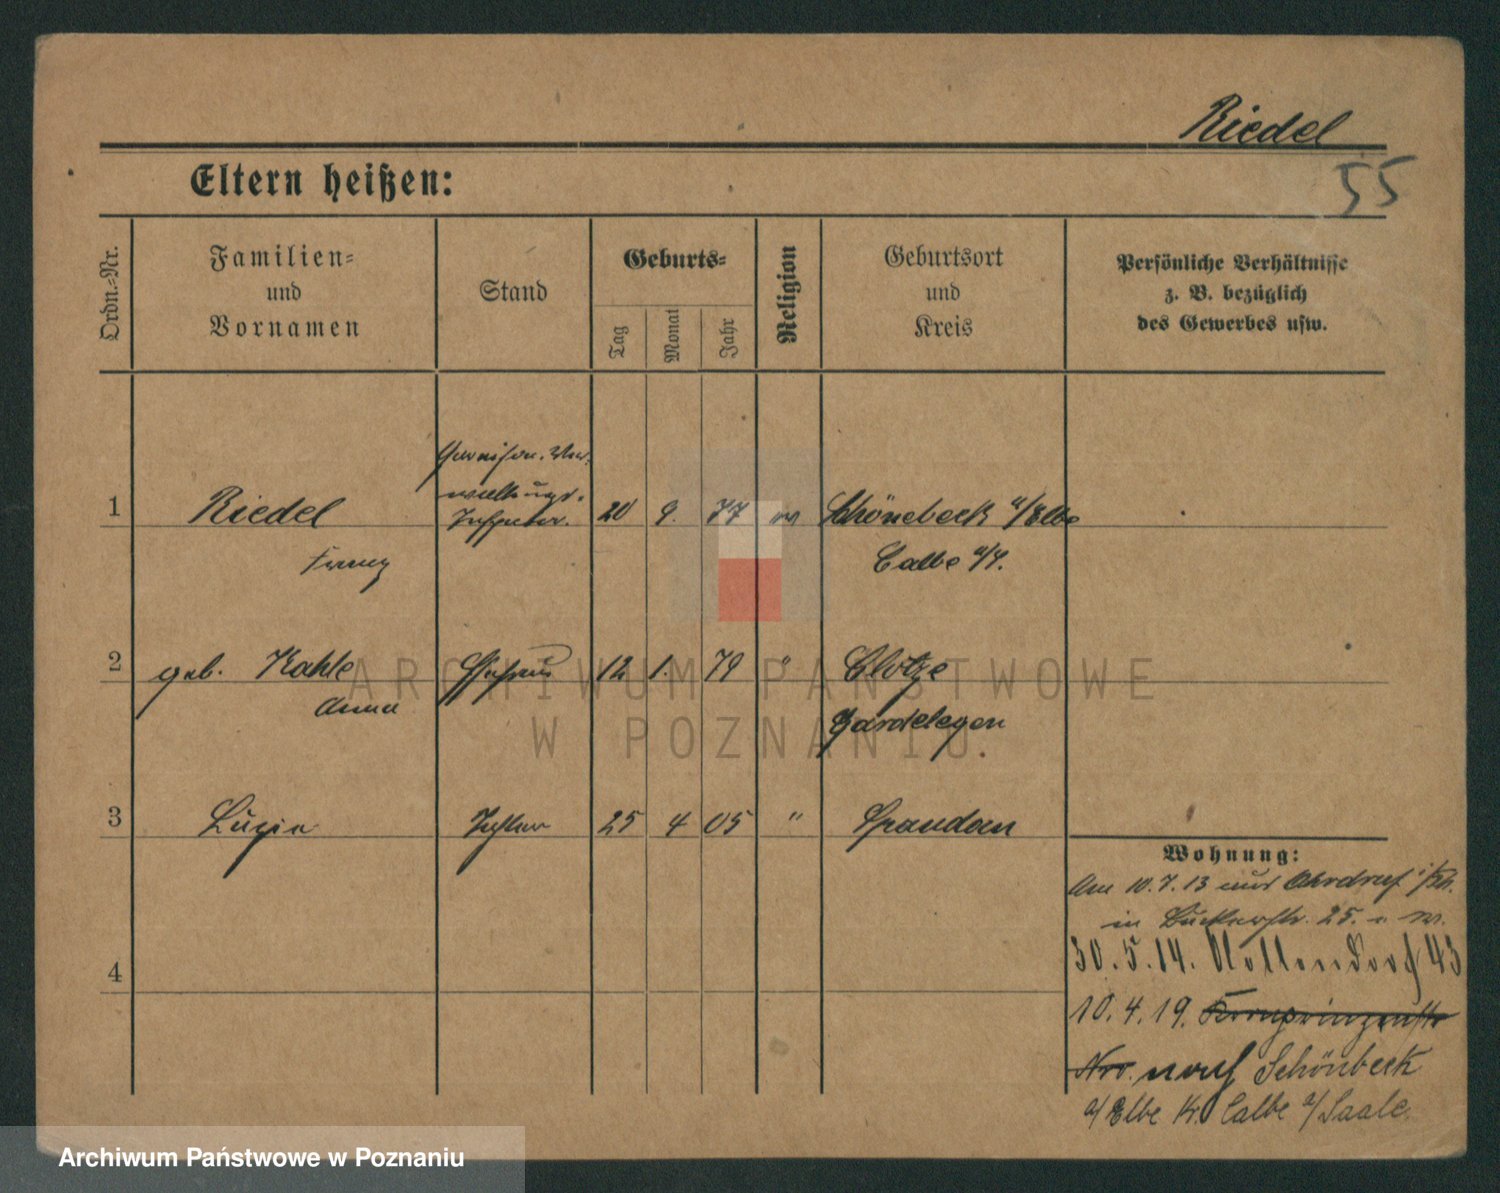 Riedel
55
Eltern heißen:
Ordn.-Nr.
Familien-
und
Vornamen
Stand
Geburts-
Tag
Monat
Jahr
Religion
Geburtsort
und
Kreis
Persönliche Verhältnisse
z. B. bezüglich
des Gewerbes usw.
Garnison. Ver-
waltungs-
1 Riedel Inspektor. 20 9. 77 Schönebeck a/Elbe
Franz Calbe a/S.
2 geb. Kahle Ehefrau 12 1. 79 " Clötze
Anna Gardelegen
3 Luzia Tochter 25 4 05 " Spandau
4
Wohnung:
Am 10.7.13 aus Ohrdruf i/Th.
in 25.
30.5.14. Nollendorf 43
10.4.19. Kronprinzenstr
nach Schönbeck
a/Elbe Kr. Calbe a/Saale.
ARCHIWUM PAŃSTWOWE
W POZNANIU.
Archiwum Państwowe w Poznaniu